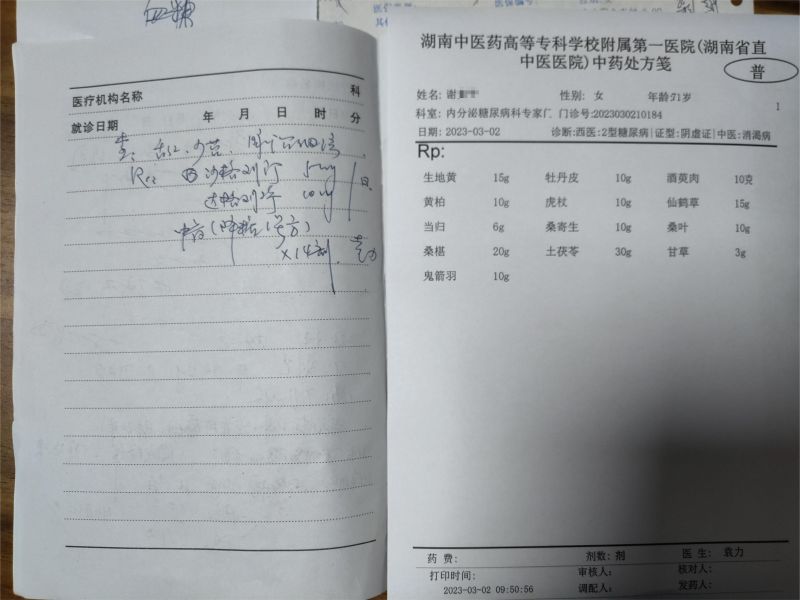 血糖
医疗机构名称 科
就诊日期 年 月 日 时 分
查：舌红，少苔
沙格列汀 5mg
达格列净 10mg
中药(降糖1号方)
×14剂 袁力
湖南中医药高等专科学校附属第一医院(湖南省直
中医医院)中药处方笺
普
姓名：谢 性别：女 年龄51岁
1
科室：内分泌糖尿病科专家门 门诊号：2023030210184
日期：2023-03-02 诊断：西医：2型糖尿病|证型：阴虚证|中医：消渴病
Rp:
生地黄 15g 牡丹皮 10g 酒萸肉 10克
黄柏 10g 虎杖 10g 仙鹤草 15g
当归 6g 桑寄生 10g 桑叶 10g
桑椹 20g 土茯苓 30g 甘草 3g
鬼箭羽 10g
药费： 剂数：剂 医生：袁力
打印时间： 审核人： 核对人：
2023-03-02 09:50:56 调配人： 发药人：